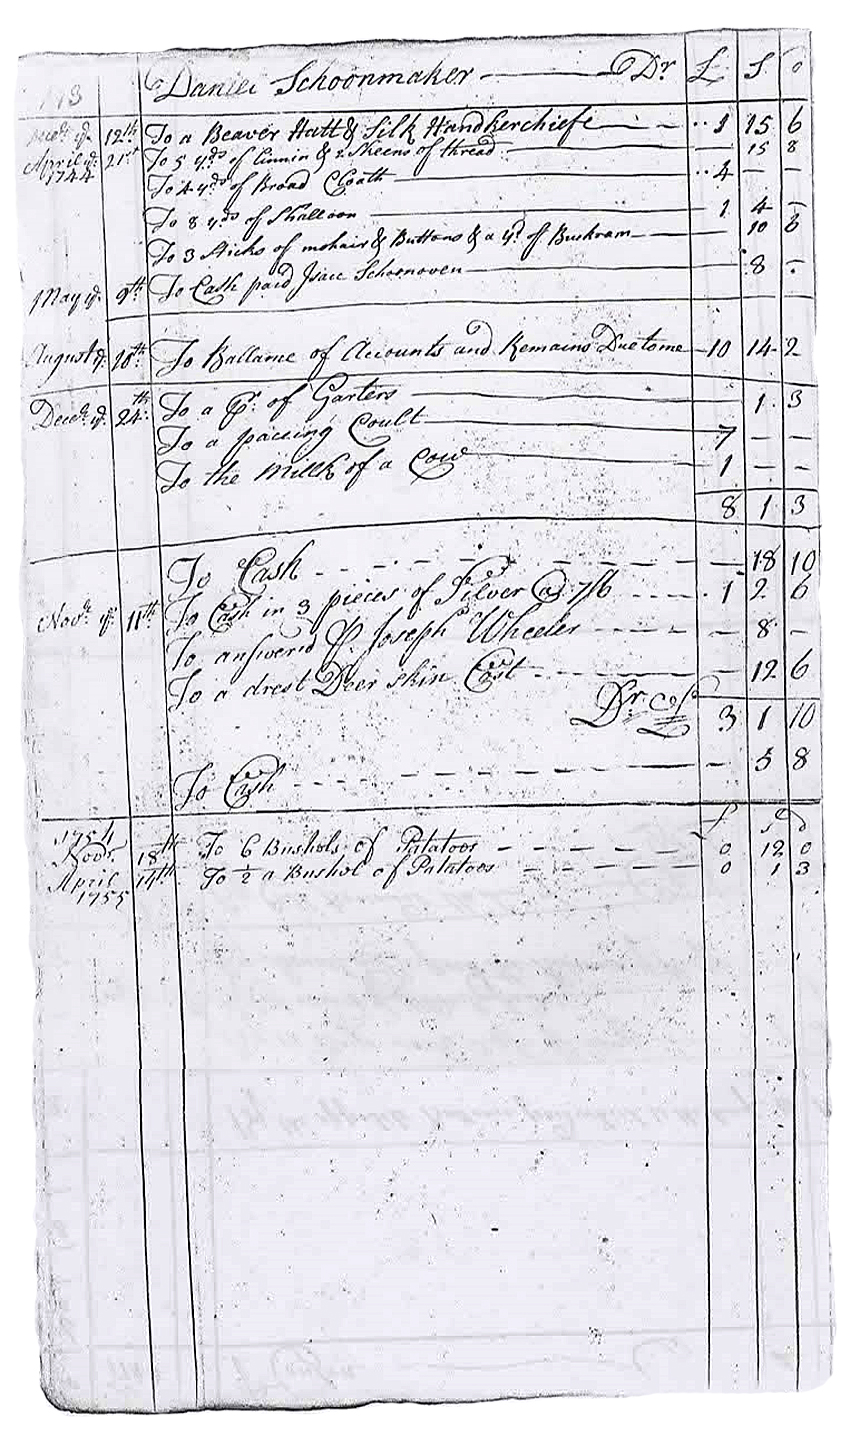 Daniel Schoonmaker Dr £ S D
Decbr ye 12th To a Beaver Hatt & Silk Handkerchiefe 1 15 6
April ye 21st To 5 yds of linnin & 2 Skeens of thread 15 8
1744 To 4 yds of Broad Cloath 4 - -
To 8 yds of Shalloon 1 4 -
To 3 Sticks of mohair & Buttons & a yd of Buckram 10 6
May ye 9th To Cash paid Isacc Schoonoven 8 -
August ye 10th To Ballance of Accounts and Remains Due to me 10 14 2
Decbr ye 24th To a Pr. of Garters 1 3
To a pacing Coult 7 - -
To the Millk of a Cow 1 - -
8 1 3
To Cash 18 10
Novbr ye 11th To Cash in 3 pieces of Silver @ 7/6 1 2 6
To answered P. Joseph Wheeler - 8 -
To a drest Deer skin Cost - 12 6
Dr 3 1 10
To Cash - 5 8
£ s d
1754
Novr. 18th To 6 Bushols of Patatoos 0 12 0
April 14th To ½ a Bushol of Patatoos 0 1 3
1755